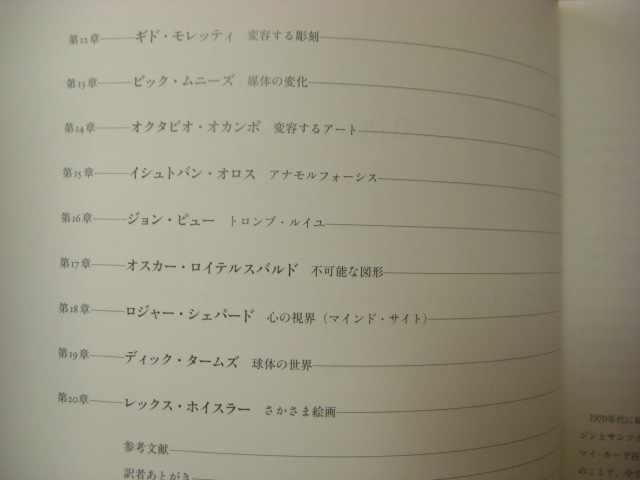 第12章 ギド・モレッティ 変容する彫刻
第13章 ビック・ムニーズ 媒体の変化
第14章 オクタビオ・オカンポ 変容するアート
第15章 イシュトバン・オロス アナモルフォーシス
第16章 ジョン・ピュー トロンプ・ルイユ
第17章 オスカー・ロイテルスバルド 不可能な図形
第18章 ロジャー・シェパード 心の視界（マインド・サイト）
第19章 ディック・タームズ 球体の世界
第20章 レックス・ホイスラー さかさま絵画
参考文献
訳者あとがき
1970年代に
ジンとサンフラ
マイ・カーで
のことで、